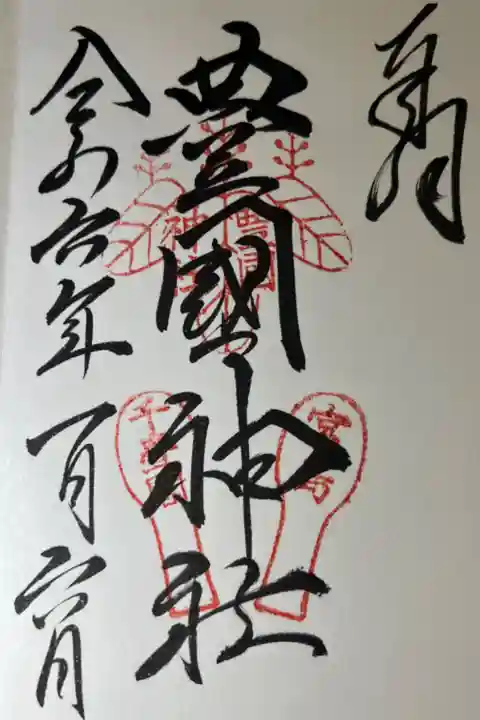 奉拝
豊國神社
令和六年
一月六日
豊国
神社
宮島
千畳閣